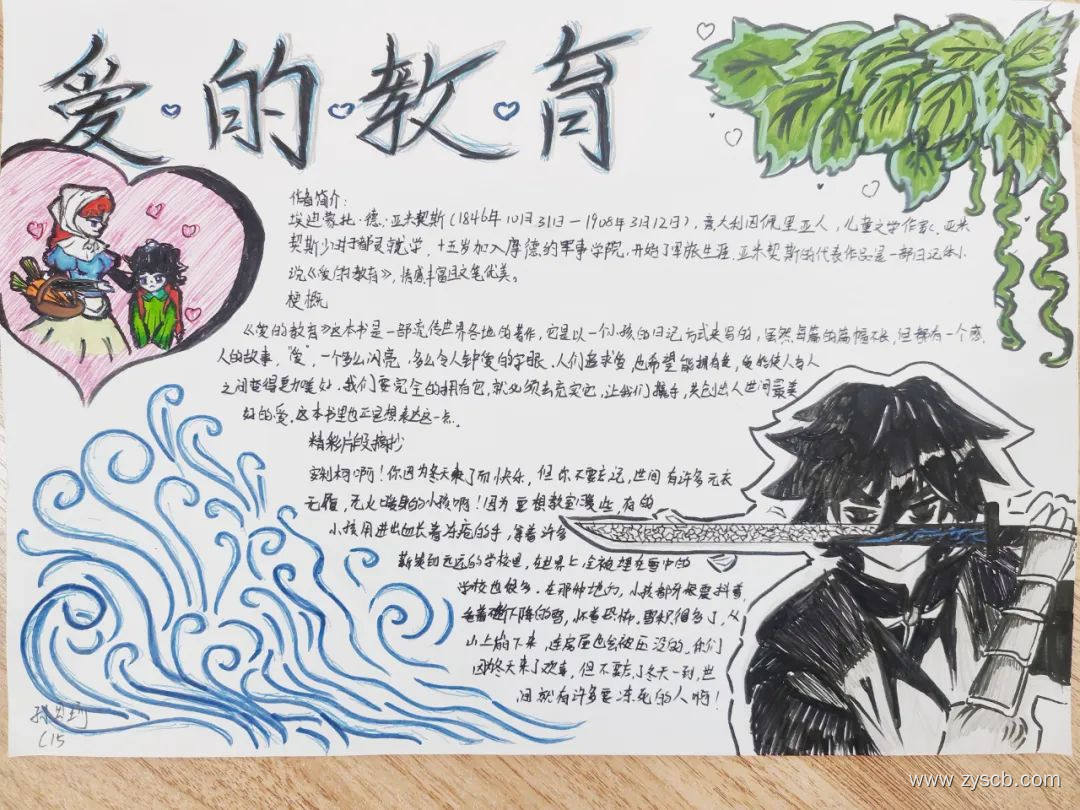 爱·的·教·育
作者简介:
埃迪蒙托·德·亚米契斯(1846年10月31日—1908年3月12日),意大利因佩里亚人,儿童文学作家。亚米
契斯少时于都灵就学,十五岁加入摩德纳军事学院,开始了军旅生涯,亚米契斯的代表作品是一部日记体小
说《爱的教育》,情感丰富且文笔优美。
梗概
《爱的教育》这本书是一部流传世界各地的著作,它是以一个小孩的日记方式来写的,虽然每篇的篇幅不长,但都有一个感
人的故事。"爱",一个多么闪亮,多么令人钟爱的字眼,人们追求爱,也希望能拥有爱,爱能使人与人
之间变得更加美好,我们要完全的拥有它,就必须去充实它,让我们携手,共创出人世间最美
好的爱,这本书里也正是想表达这一点。
精彩片段摘抄
安利柯啊!你因为冬天来了而快乐,但你不要忘记,世间有许多无衣
无履,无火暖身的小孩啊!因为要想教室暖些,有的
小孩用迸出血长着冻疮的手,拿着许多
薪柴到远远的学校里,在世界上,全被埋在雪中的
学校也很多。在那种地方,小孩都牙根震抖着,
看着不断下降的雪,怀着恐怖。雪积得多了,从
山上崩下来,连房屋也会被压没的。你们
因为冬天来了欢喜,但不要忘了冬天一到,世
间就有许多要冻死的人啊!
C15
www.zyscb.com